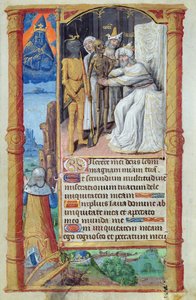 iserere mei deus secun
magnam miam tuam
Et secundum multitudine
miserationum tuarum dele
iniquitatem meam
Amplius laua domine ab
iniquitate mea et apeccato
meo munda me
iniquitatem meam
ego cognosco et peccatum meu